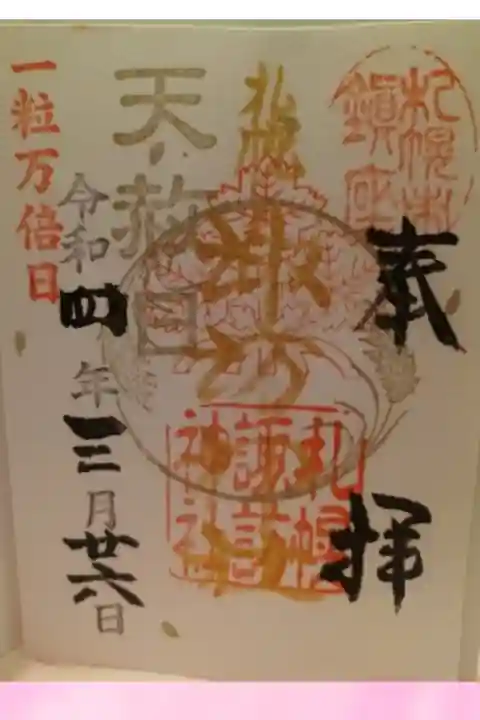 奉拝
札幌村
鎮座
札幌
札幌
諏訪
神社
天赦日
令和四年三月廿六日
一粒万倍日